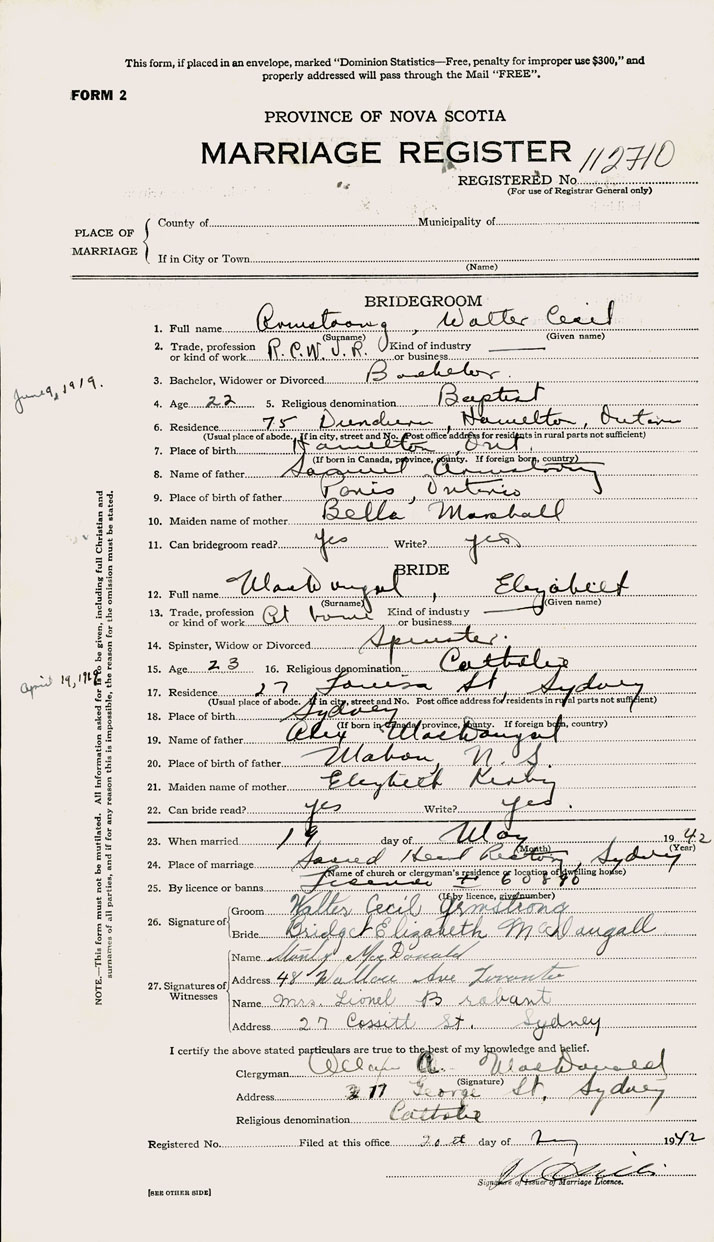 This form, if placed in an envelope, marked "Dominion Statistics—Free, penalty for improper use $300," and
properly addressed will pass through the Mail "FREE".
FORM 2
PROVINCE OF NOVA SCOTIA
MARRIAGE REGISTER 112710
REGISTERED No.
(For use of Registrar General only)
PLACE OF MARRIAGE
County of Municipality of
If in City or Town
(Name)
BRIDEGROOM
1. Full name Armstrong, Walter Cecil
(Surname) (Given name)
2. Trade, profession or kind of work R.C.N.V.R. Kind of industry or business
3. Bachelor, Widower or Divorced Bachelor.
June 9, 1919.
4. Age 22 5. Religious denomination Baptist
6. Residence 75 Dundurn, Hamilton, Ontario
(Usual place of abode. If in city, street and No. Post office address for residents in rural parts not sufficient)
7. Place of birth Hamilton, Ont.
(If born in Canada, province, county. If foreign born, country)
8. Name of father Samuel Armstrong
9. Place of birth of father Paris, Ontario
10. Maiden name of mother Bella Marshall
11. Can bridegroom read? yes Write? yes
BRIDE
12. Full name MacDougal, Elizabeth
(Surname) (Given name)
13. Trade, profession or kind of work At home Kind of industry or business
14. Spinster, Widow or Divorced Spinster.
15. Age 23 16. Religious denomination Catholic
April 19,
17. Residence 27 Louisa St, Sydney
(Usual place of abode. If in city, street and No. Post office address for residents in rural parts not sufficient)
18. Place of birth Sydney
(If born in Canada, province, county. If foreign born, country)
19. Name of father Alex MacDougal
20. Place of birth of father Mabou, N.S.
21. Maiden name of mother Elizabeth Kirby
22. Can bride read? yes Write? yes.
23. When married 19 day of May 1942
(Month) (Year)
24. Place of marriage Sacred Heart Rectory, Sydney
(Name of church or clergyman's residence or location of dwelling house)
25. By licence or banns License # 60890
(If by licence, give number)
26. Signature of
Groom Walter Cecil Armstrong
Bride Bridget Elizabeth MacDougall
27. Signatures of Witnesses
Name MacDonald
Address 48 Wallace Ave Toronto
Name Mrs. Lionel Brabant
Address 27 Cossitt St. Sydney
I certify the above stated particulars are true to the best of my knowledge and belief.
Clergyman A. MacDonald
(Signature)
Address George St, Sydney
Religious denomination Catholic
Registered No. Filed at this office 20th day of May 1942
Signature of Issuer of Marriage Licence.
[SEE OTHER SIDE]
NOTE.—This form must not be mutilated. All information asked for is to be given, including full Christian and
surnames of all parties, and if for any reason this is impossible, the reason for the omission must be stated.